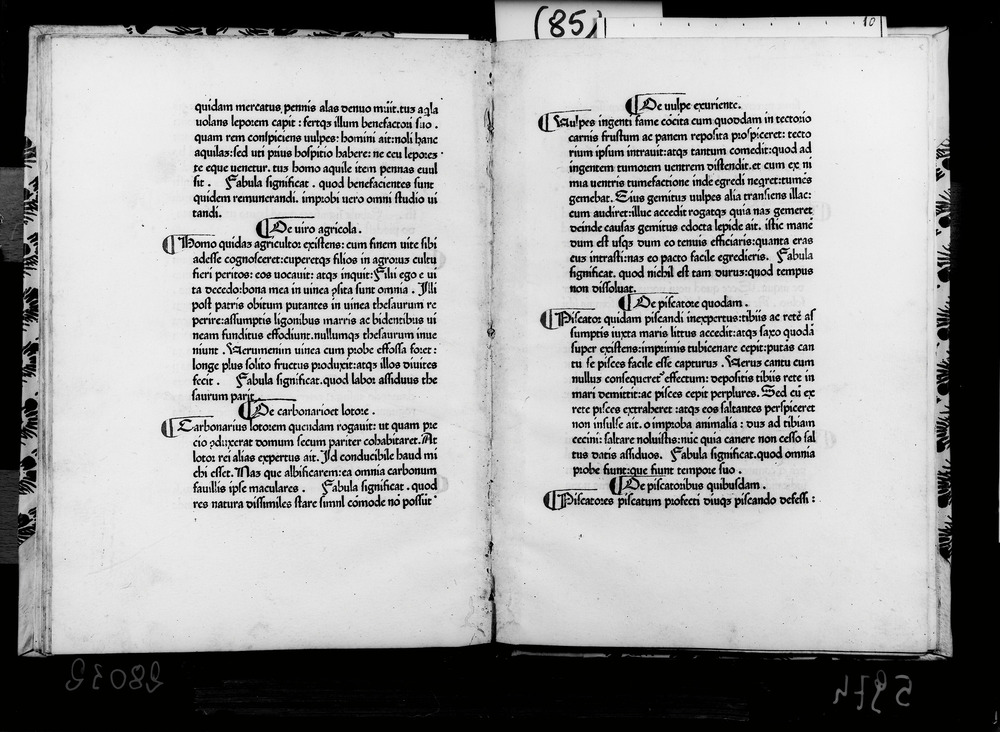 (85)
10
quidam mercatus pennis alas denuo muit.tuʒ aqla
uolans leporem capit : fertqʒ illum benefactori suo .
quam rem conspiciens uulpes: homini ait:noli hanc
aquilaʒ:sed uti prius hospitio habere: ne ceu lepores ·
te eque uenetur. tuʒ homo aquile item pennas euul
sit . Fabula significat . quod benefacientes sunt
quidem remunerandi. improbi uero omni studio ui
tandi.
¶De uiro agricola .
¶Homo quidaʒ agricultor existens: cum finem uite sibi
adesse cognosceret:cuperetqʒ filios in agrorus cultu
fieri peritos: eos uocauit: atqʒ inquit:Filii ego e ui
ta decedo:bona mea in uinea ꝓsita sunt omnia . Illi
post patris obitum putantes in uinea thesaurum re
perire:assumptis ligonibus marris ac bidentibus ui
neam funditus effodiunt.nullumqʒ thesaurum inue
niunt . Verumenim uinea cum probe effossa foret :
longe plus solito fructus produxit:atqʒ illos diuites
fecit . Fabula significat.quod labor assiduus the
saurum parit.
¶De carbonarioet lotore .
¶Carbonarius lotorem quendam rogauit: ut quam pre
cio ꝯduxerat domum secum pariter cohabitaret. At
lotor rei alias expertus ait. Id conducibile haud mi
chi esset. Nas que albificarem:ea omnia carbonum
fauillis ipse maculares . Fabula significat . quod
res natura dissimiles stare simul cōmode nō possūt
¶De uulpe exuriente.
¶Vulpes ingenti fame cōcita cum quoddam in tectorio
carnis frustum ac panem reposita prospiceret: tecto
rium ipsum intrauit:atqʒ tantum comedit:quod ad
ingentem tumorem uentrem distendit. et cum ex ni
mia uentris tumefactione inde egredi neqret:tumēs
gemebat. Eius gemitus uulpes alia transiens illac:
cum audiret:illuc accedit rogatqʒ quia naʒ gemeret
deinde causaʒ gemitus edocta lepide ait. istic mane
dum est usqʒ dum eo tenuis efficiaris:quanta eras
cuʒ intrasti:naʒ eo pacto facile egredieris. Fabula
significat. quod nichil est tam durus:quod tempus
non dissoluat.
¶De piscatore quodam .
¶Piscator quidam piscandi inexpertus:tibiis ac rete as
sumptis iuxta maris littus accedit:atqʒ saxo quodā
super existens:imprimis tubicenare cepit:putās can
tu se pisces facile esse capturus . Verus cantu cum
nullus consequeret effectum: depositis tibiis rete in
mari demittit:ac pisces cepit perplures. Sed cū ex
rete pisces extraheret :atqʒ eos saltantes perspiceret
non insulse ait. o improba animalia : duʒ ad tibiam
cecini: saltare noluistis:nūc quia canere non cesso sal
tus datis assiduos. Fabula significat.quod omnia
probe fiunt:que fiunt tempore suo .
¶De piscatoribus quibusdam .
¶Piscatores piscatum profecti diuqʒ piscando defessi :
28032
5974